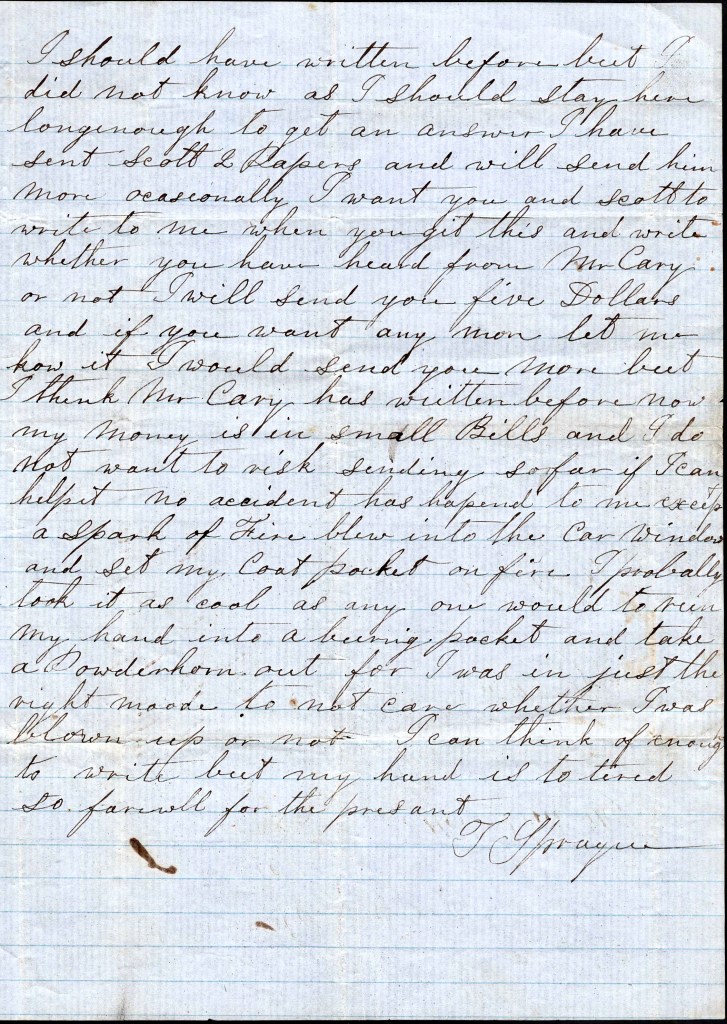 I should have written before but I
did not know as I should stay here
longenough to get an answer I have
sent Scott 2 Papers and will send him
more ocaseonally I want you and scott to
write to me when you git this and write
whether you have heard from Mr Cary
or not I will send you five Dollars
and if you want any mor let me
know it I would send you more but
I think Mr Cary has written before now
my money is in small Bills and I do
not want to risk sending sofar if I can
helpit no accident has hapend to me excep
a spark of Fire blew into the Car Window
and set my Coat pocket on fire I probally
took it as cool as any one would to run
my hand into a burnig pocket and take
a Powderhorn out for I was in just the
right moode to not care whether I was
blown up or not I can think of enoug
to write but my hand is to tired
so farwell for the presant
T Sprague